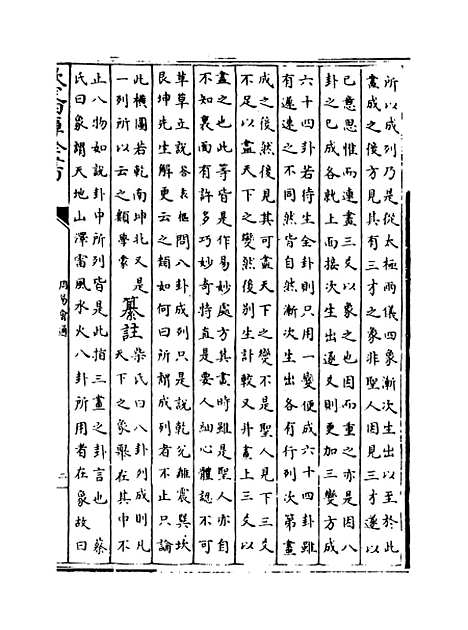 所以成列乃是從太極兩儀四象漸次生出以至於此
畫成之後方見其有三才之象非聖人因見三才遂以
己意思惟而連畫三爻以象之也因而重之亦是因八
卦之已成各就上面接次生出遂又則更加三變方成
六十四卦若待生全卦則只用一變便成六十四卦雖
有遲速之不同然皆自然漸次生出各有行列次第畫
成之後然後見其可盡天下之變不是聖人見下三爻
不足以盡天下之變然後別生計較又幷畫上三爻以
盡之也此等皆是作易妙處方其畫時雖是聖人亦自
不知裏面有許多巧妙奇特直是要人細心體認不可
草草立說 答袁樞問八卦成列只是說乾兌離震巽坎
艮坤先生解更云之類如何曰所謂成列者不止只論
此横圖若乾南坤北又是
一列所以云之類 專录
纂註
柴氏曰八卦列成則凡
天下之象聚在其中不
止八物如說卦中所列皆是此指三畫之卦言也 蔡
氏曰象謂天地山澤雷風水火八卦所用者在象故曰
周易會通
二